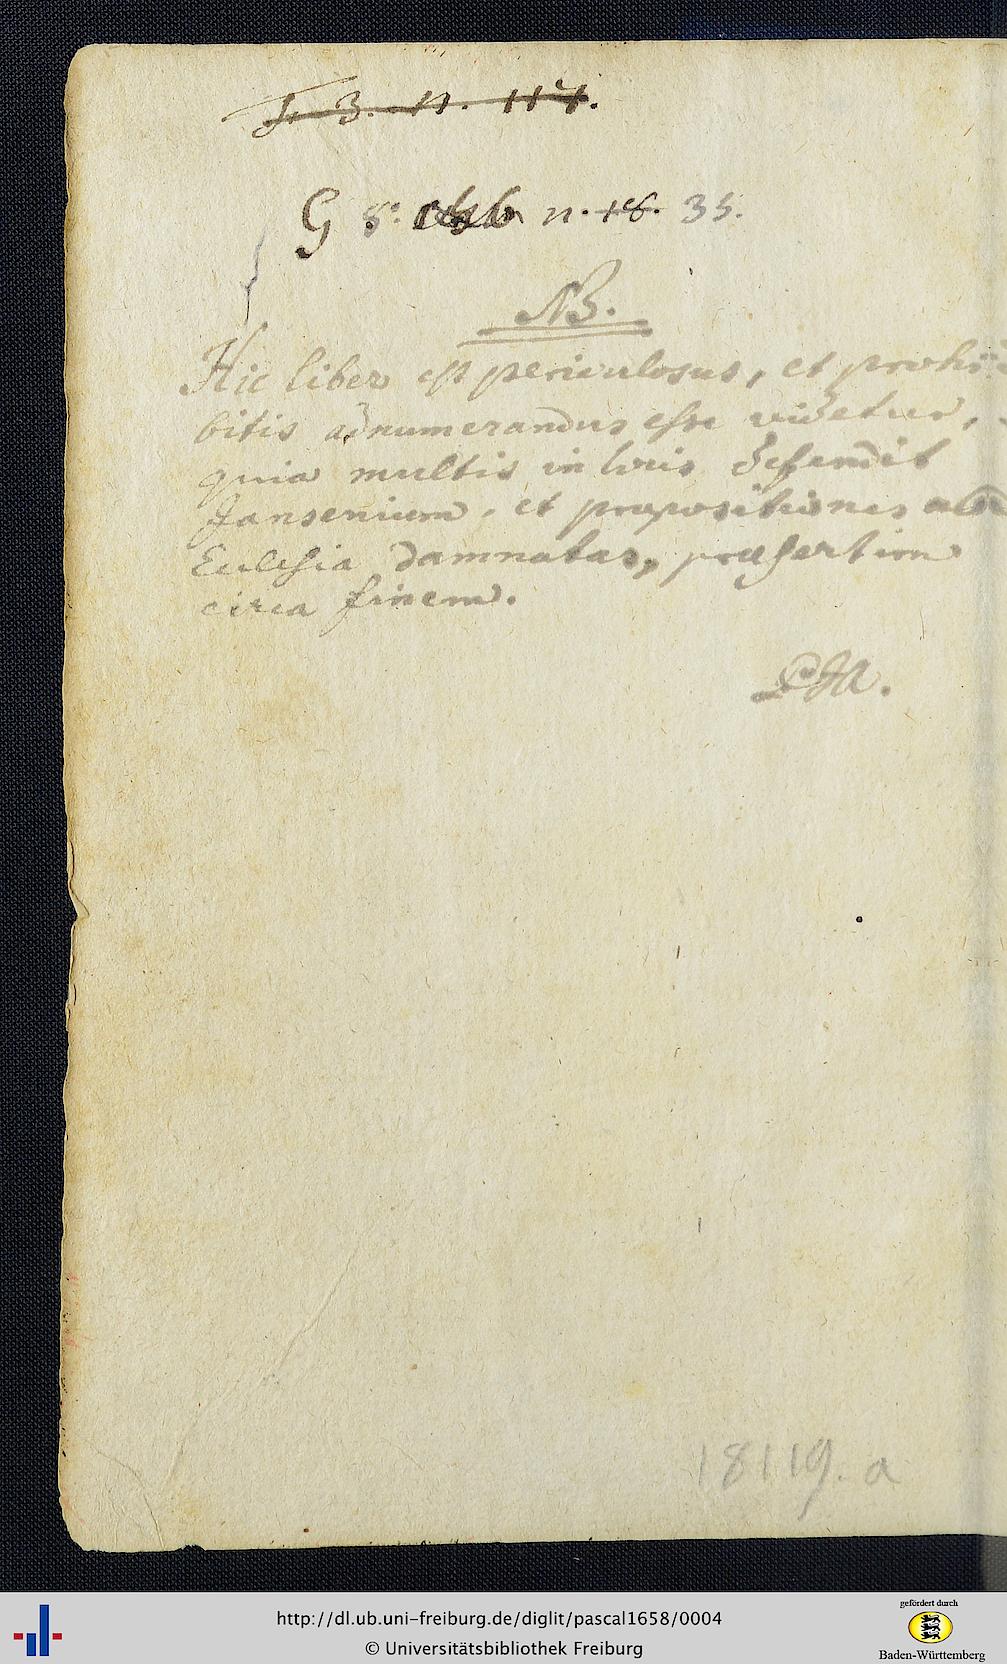 F. 3. n. 114.
G 8º. n. 18. 35.
NB.
Hic liber est periculosus, et prohi
bitis adnumerandus esse videtur,
quia multis in locis defendit
Jansenium, et propositiones ab
Ecclesia damnatas, præsertim
circa finem.
18119. a
http://dl.ub.uni-freiburg.de/diglit/pascal1658/0004
© Universitätsbibliothek Freiburg
gefördert durch
Baden-Württemberg